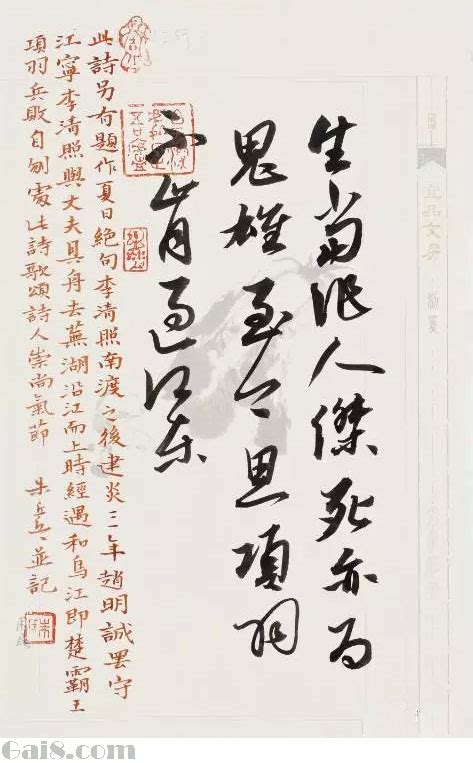 生當作人傑死亦為
鬼雄至今思項羽
不肯過江東
此詩另有題作夏日絕句李清照南渡之後建炎三年趙明誠罷守
江寧李清照與丈夫具舟去蕪湖沿江而上時經遇和烏江即楚霸王
項羽兵敗自刎處此詩歌頌詩人崇尚氣節 朱 並記
Gai8.com